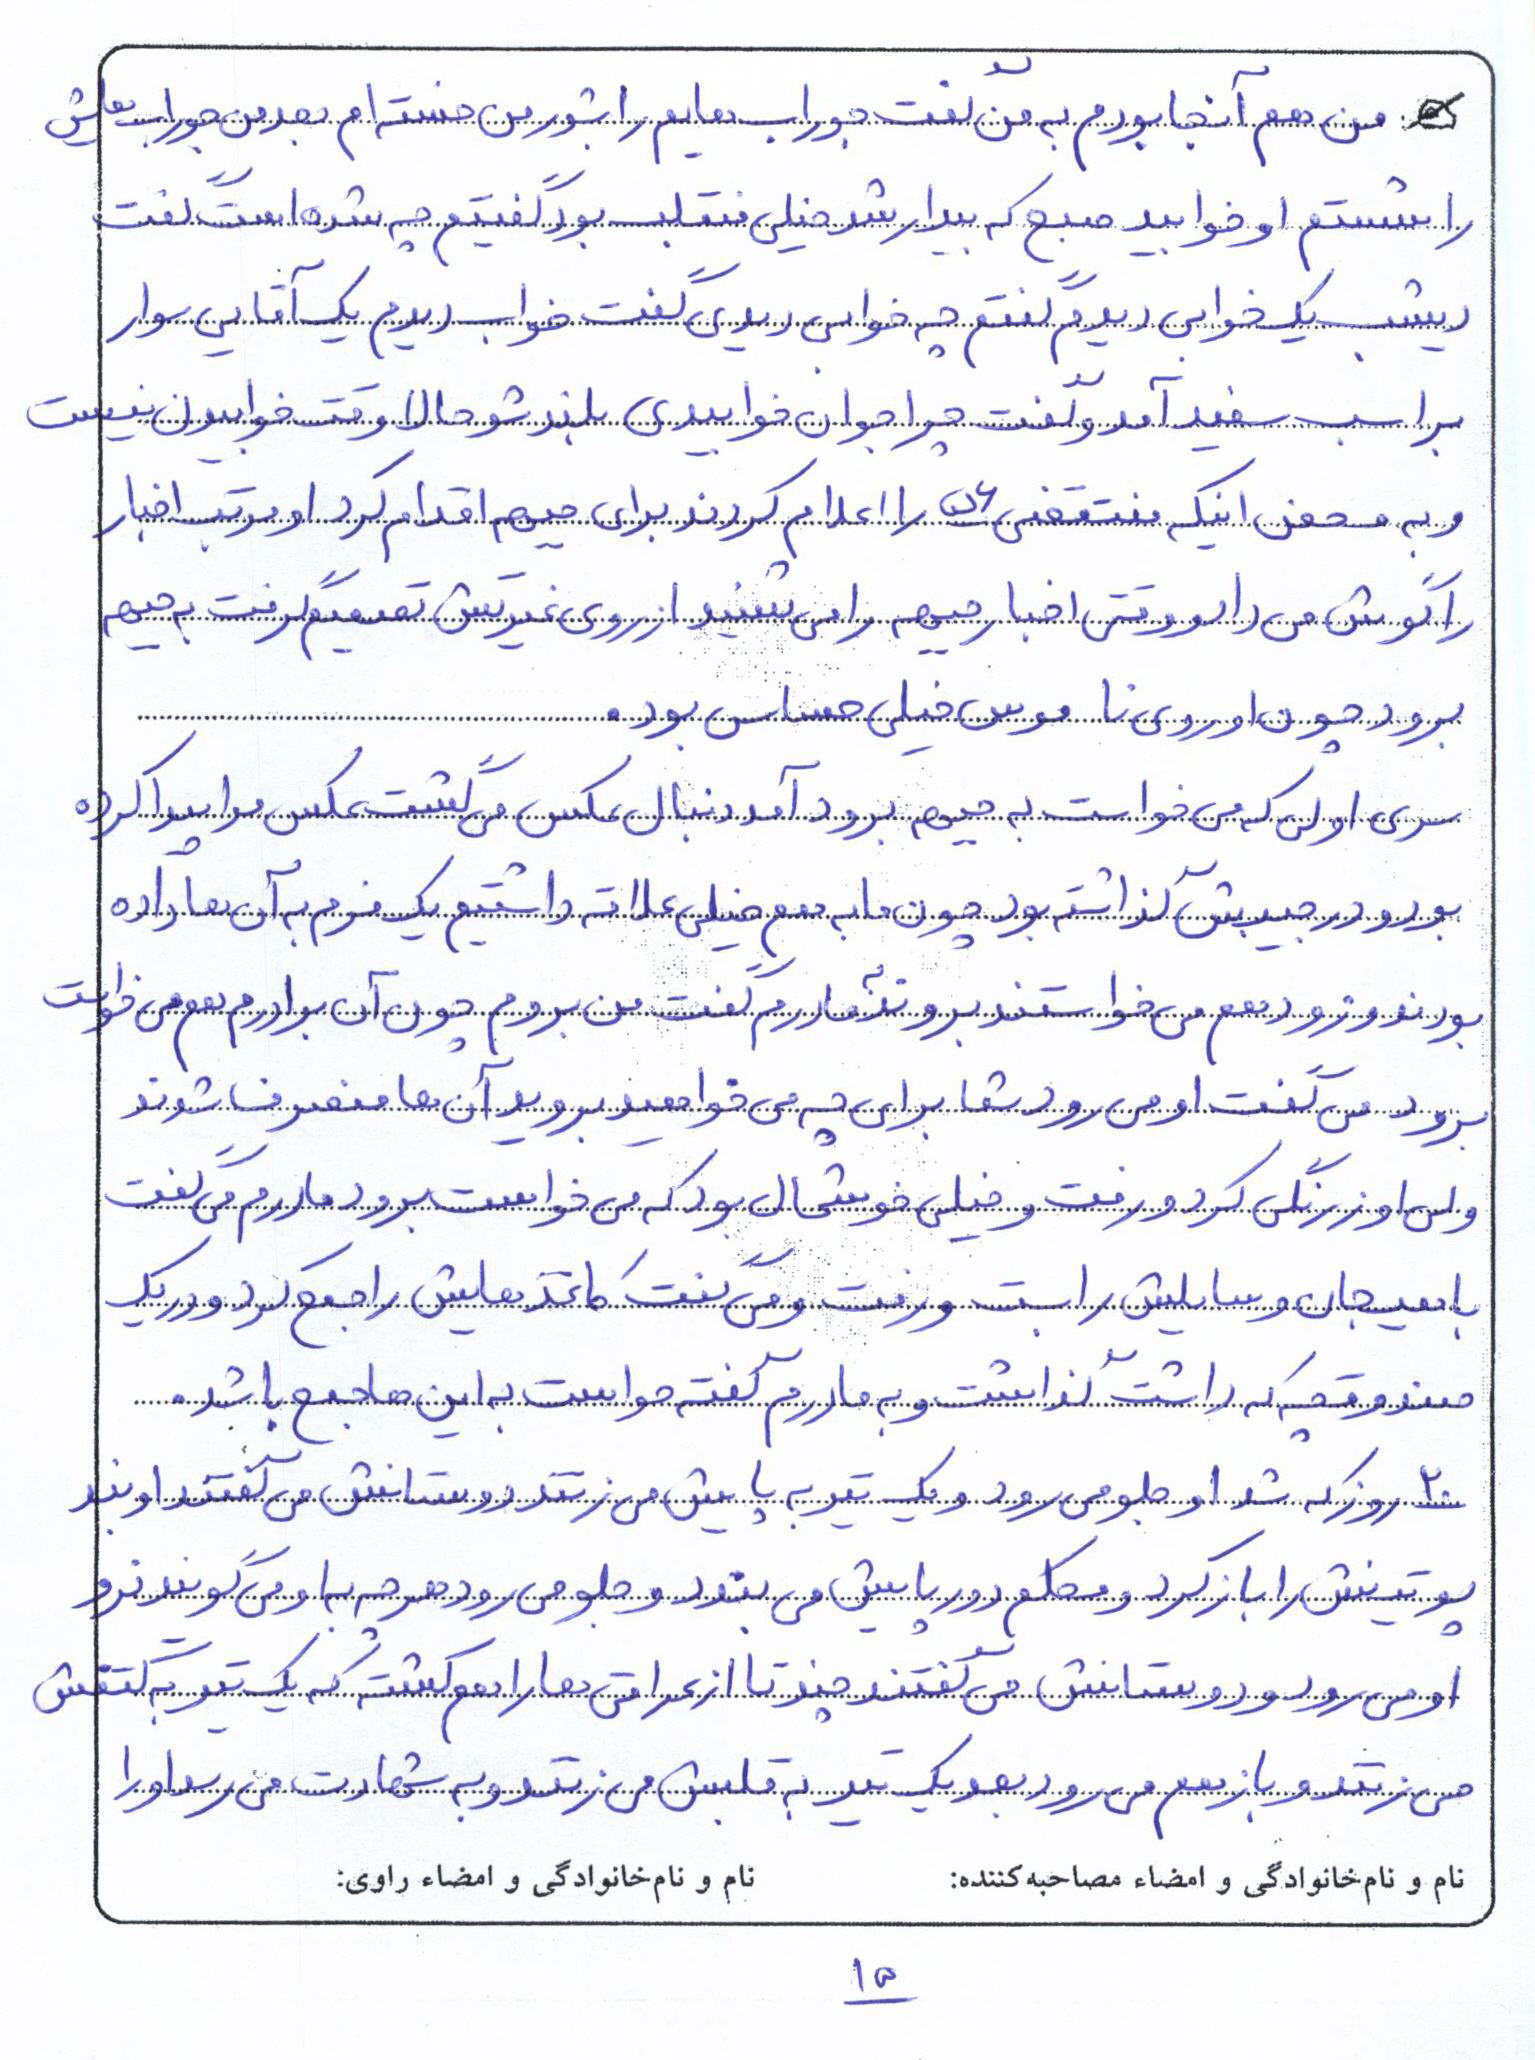 من هم آنجا بودم به من گفت جوراب هایم را بشور من خسته ام بعد من جوراب هایش
را شستم او خوابید صبح که بیدار شد خیلی منقلب بود گفتیم چه شده است گفت
دیشب یک خوابی دیدم گفتم چه خوابی دیدی گفت خواب دیدم یک آقایی سوار
بر اسب سفید آمد و گفت چرا جوان خوابیدی بلند شو حالا وقت خوابیدن نیست
و به محض اینکه منقضی ۵۶ را اعلام کردند برای جبهه اقدام کرد او مرتب اخبار
را گوش می داد و وقتی اخبار جبهه را می شنید از روی غیرتش تصمیم گرفت به جبهه
برود چون او روی ناموس خیلی حساس بود.
سری اولی که می خواست به جبهه برود آمد دنبال عکس می گشت عکس مرا پیدا کرده
بود و در جیبش گذاشته بود چون ما به هم خیلی علاقه داشتیم یک فرم به آن ها داده
بودند و زود هم می خواستند بروند مادرم گفت من بروم چون آن برادرم هم می خواست
برود می گفت او می رود شما برای چه می خواهید بروید آن ها منصرف شوند
ولی او زرنگی کرد و رفت و خیلی خوشحال بود که می خواست برود مادرم می گفت
با هیجان وسایلش را بست و رفت و می گفت کاغذ هایش را جمع کرد و در یک
صندوقچه که داشت گذاشت و به مادرم گفته حواست به این ها جمع باشد.
۲۰ روز که شد او جلو می رود و یک تیر به پایش می زنند دوستانش می گفتند او بند
پوتینش را باز کرد و محکم دور پایش می بندد و جلو می رود هر چه به او می گویند نرو
او می رود و دوستانش می گفتند چند تا از عراقی ها را هم کشته که یک تیر به کتفش
می زنند و باز هم می رود بعد یک تیر به قلبش می زنند و به شهادت می رسد او را
نام و نام‌خانوادگی و امضاء مصاحبه‌کننده: نام و نام‌خانوادگی و امضاء راوی:
۱۵